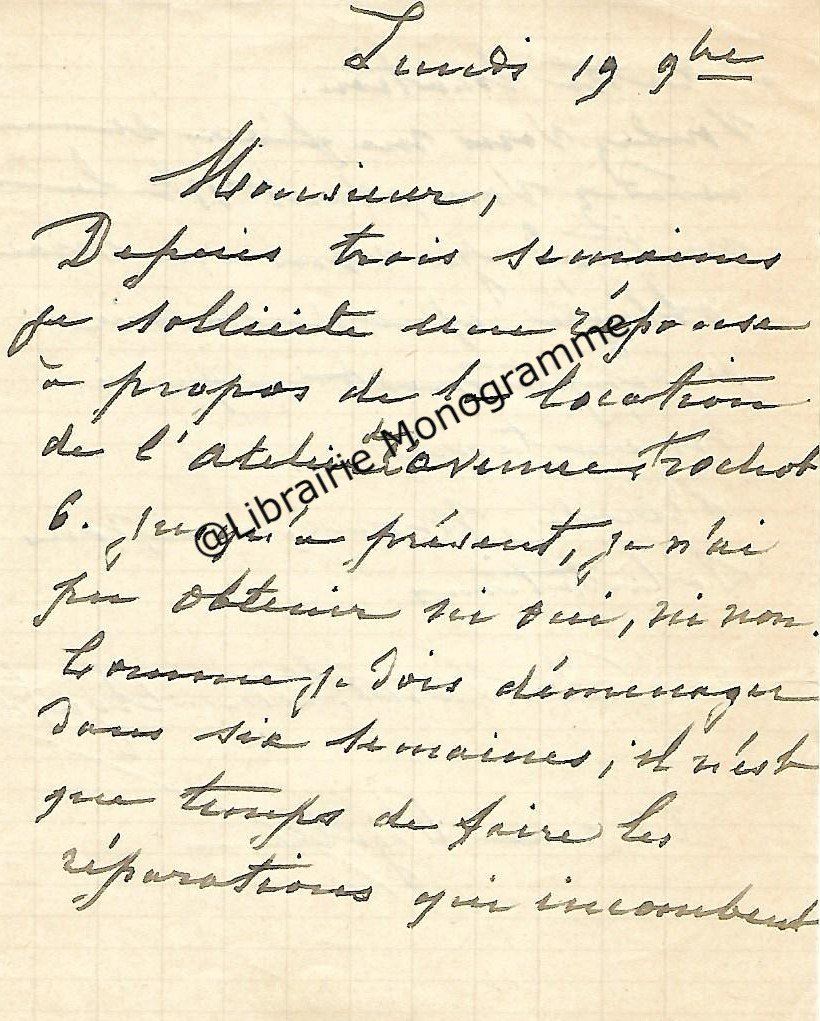 Lundi 19 9bre
Monsieur,
Depuis trois semaines
je sollicite une réponse
à propos de la location
de l'atelier de l'avenue Frochot
6. Jusqu'à présent, je n'ai
pu obtenir ni oui, ni non.
Comme je dois déménager
dans six semaines, il n'est
que temps de faire les
réparations qui incombent
@Librairie Monogramme